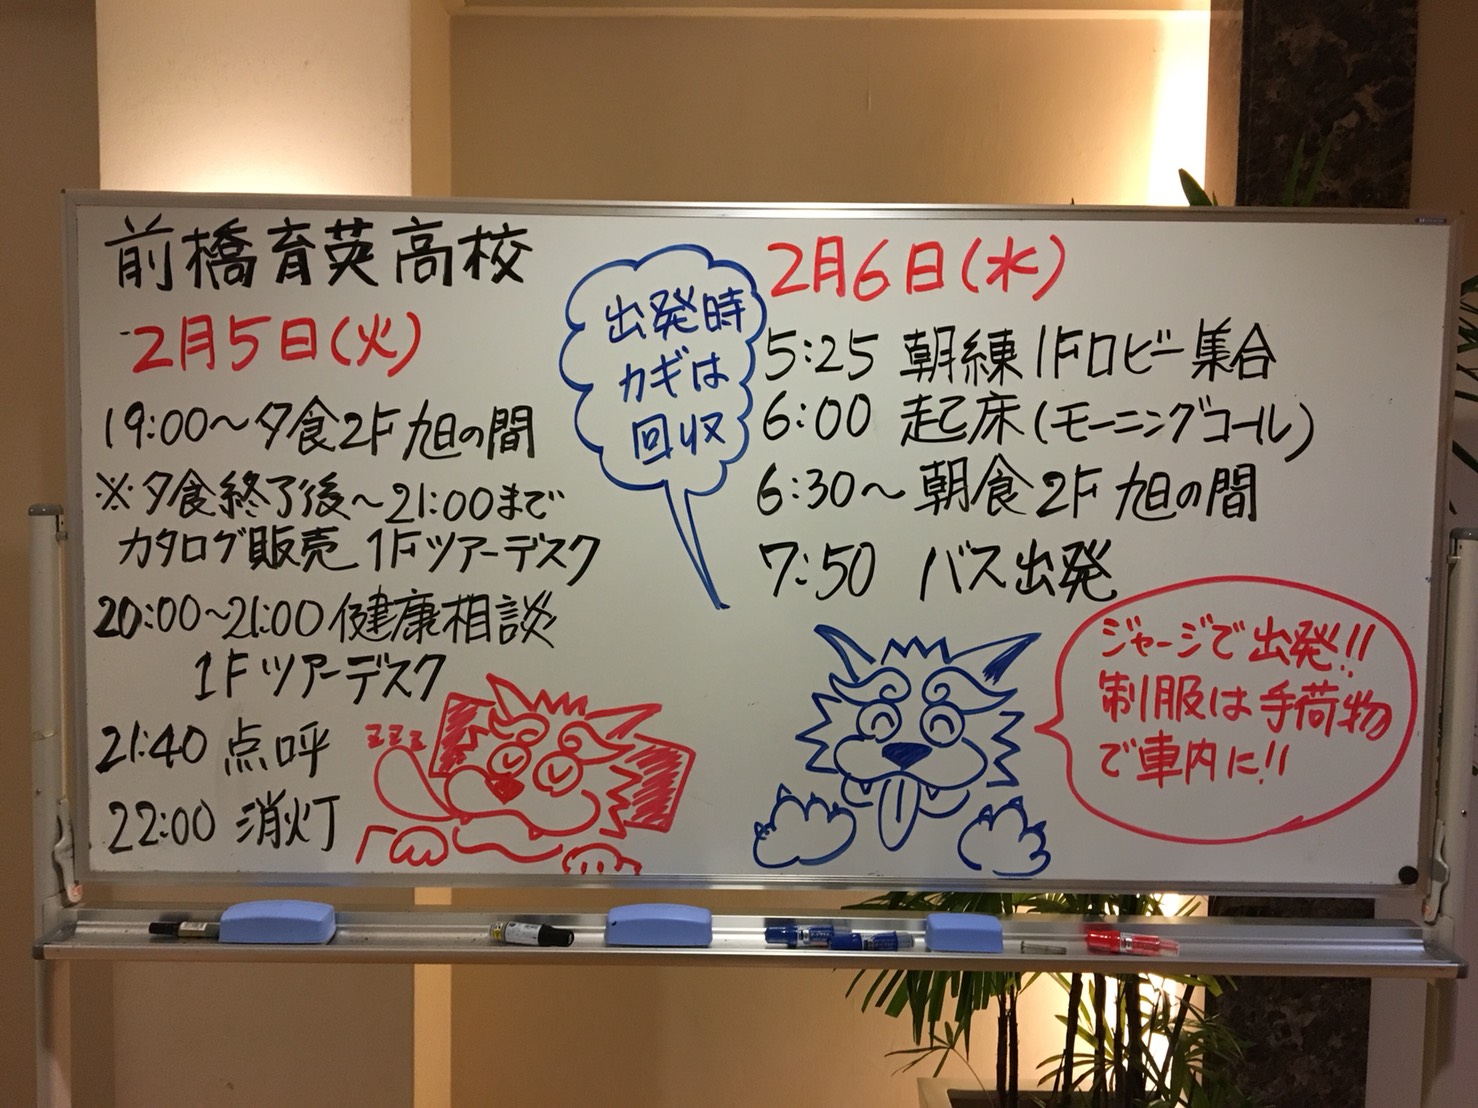 前橋育英高校
2月5日(火)
19:00〜夕食2F旭の間
※夕食終了後〜21:00まで
カタログ販売 1Fツアーデスク
20:00〜21:00健康相談
1Fツアーデスク
21:40 点呼
22:00 消灯
zzz
出発時
カギは
回収
2月6日(水)
5:25 朝練1Fロビー集合
6:00 起床(モーニングコール)
6:30〜朝食2F旭の間
7:50 バス出発
ジャージで出発!!
制服は手荷物
で車内に!!